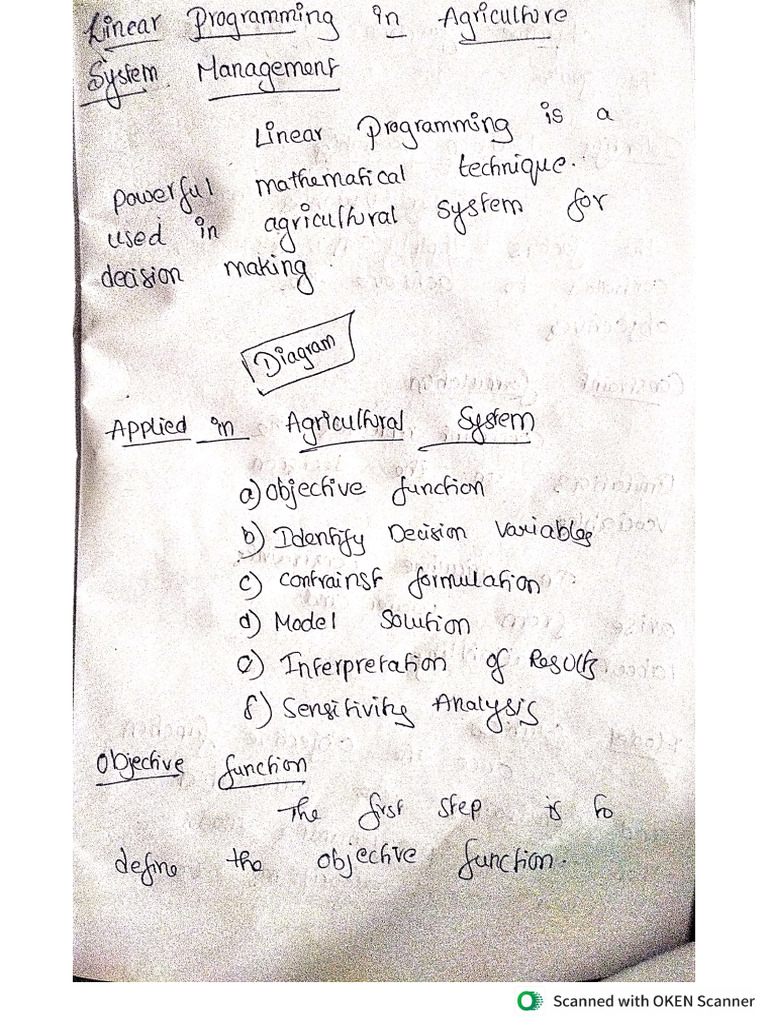 Linear Programming in Agriculture
System Management
Linear Programming is a
powerful mathematical technique.
used in agricultural system for
decision making.
Diagram
Applied in Agricultural System
a) Objective function
b) Identify Decision Variables
c) Contrainst formulation
d) Model Solution
e) Interpretation of Results
f) Sensitivity Analysis.
Objective function
The first step is to
define the objective function.
Scanned with OKEN Scanner